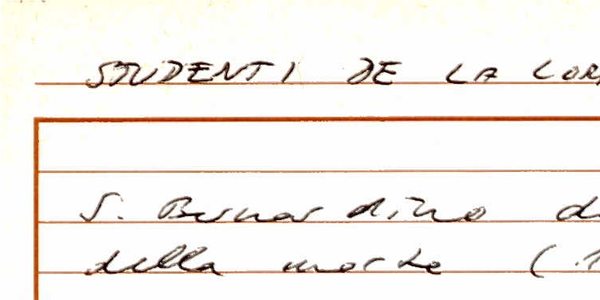 STUDENTI DE LA
S. Bernardino
della morte (